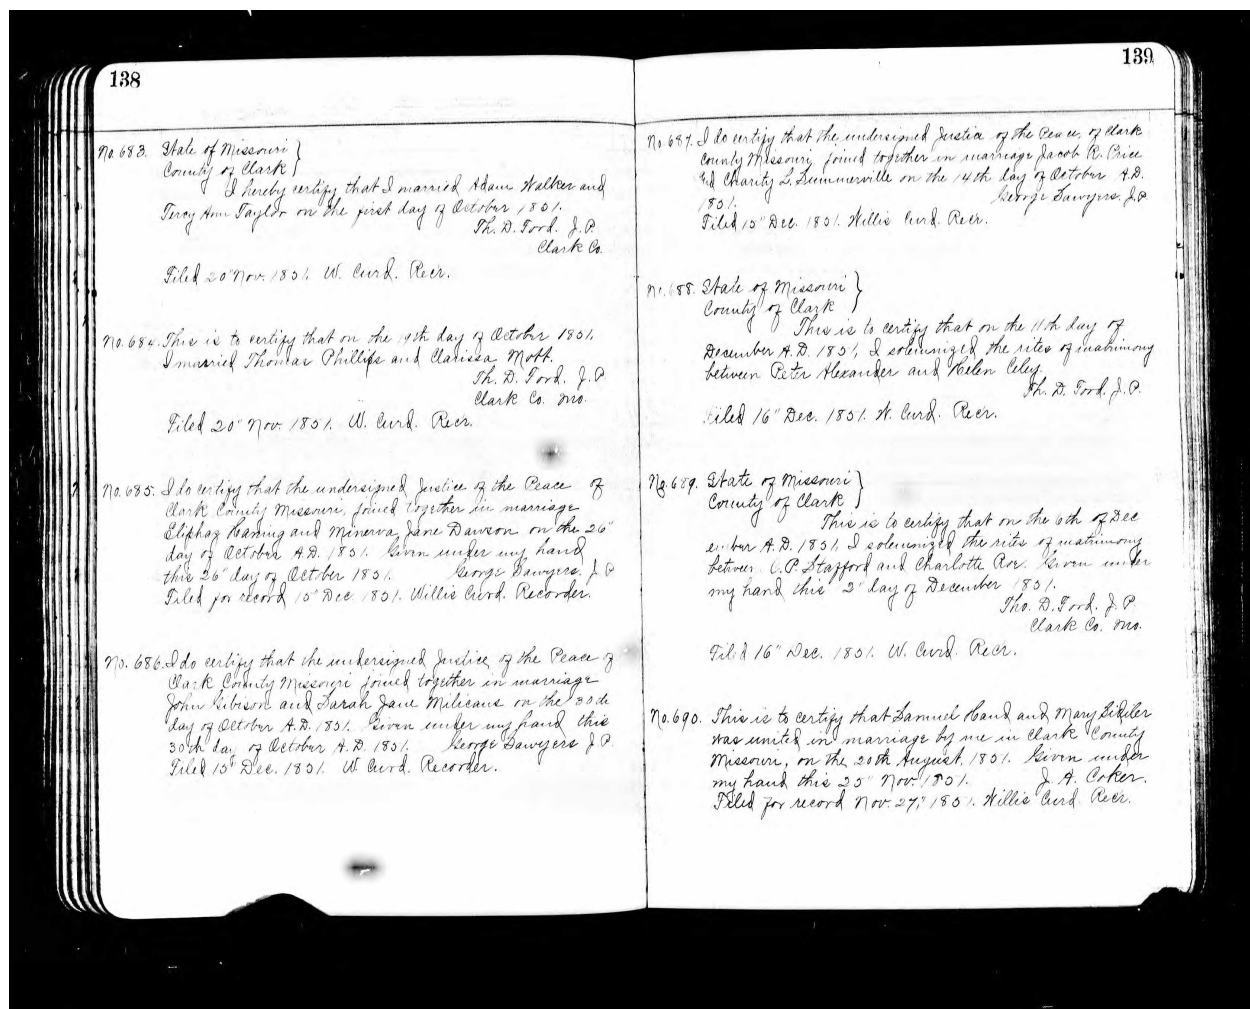 138
No. 683. State of Missouri }
County of Clark }
I hereby certify that I married Adam Walker and
Tercy Ann Taylor on the first day of October 1851.
Th. D. Ford. J. P.
Clark Co.
Filed 20" Nov. 1851. W. Curd. Recr.
No. 684. This is to certify that on the 19th day of October 1851.
I married Thomas Phillips and Clarissa Mott.
Th. D. Ford. J. P.
Clark Co. Mo.
Filed 20" Nov. 1851. W. Curd. Recr.
No. 685. I do certify that the undersigned Justice of the Peace of
Clark County Missouri, joined together in marriage
Eliphaz Haming and Minerva Jane Dawson on the 26"
day of October A.D. 1851. Given under my hand
this 26" day of Octber 1851. George Sawyers. J. P
Filed for record 15" Dec. 1851. Willis Curd. Recorder.
No. 686. I do certify that the undersigned Justice, of the Peace of
Clark County Missouri joined together in marriage
John Gibison and Sarah Jane Milicans on the 30th
day of October A.D. 1851. Given under my hand this
30th day of October A.D. 1851. George Sawyers J. P.
Filed 15" Dec. 1851. W. Curd. Recorder.
139
No. 687. I do certify that the undersigned Justice of the Peace, of Clark
County Missouri joined together in marriage Jacob R. Price
and Charity L. Summerville on the 14th day of October A.D.
1851. George Sawyers. J. P.
Filed 15" Dec. 1851. Willis Curd. Recr.
No. 688. State of Missouri }
County of Clark }
This is to certify that on the 11th day of
December A.D. 1851, I solemnized the rites of matrimony
between Peter Alexander and Helen Celey.
Th. D. Ford. J. P.
Filed 16" Dec. 1851. W. Curd. Recr.
No. 689. State of Missouri }
County of Clark }
This is to certify that on the 6th of Dec
ember A.D. 1851, I solemnized the rites of matrimony
between P. Stafford and Charlotte Roe. Given under
my hand this 2" day of December 1851.
Tho. D. Ford. J. P.
Clark Co. Mo.
Filed 16" Dec. 1851. W. Curd. Recr.
No. 690. This is to certify that Samuel Hand and Mary
was united in marriage by me in Clark County
Missouri, on the 20th August, 1851. Given under
my hand this 25" Nov. 1851. J. A. Coker.
Filed for record Nov. 27," 1851. Willis Curd. Recr.